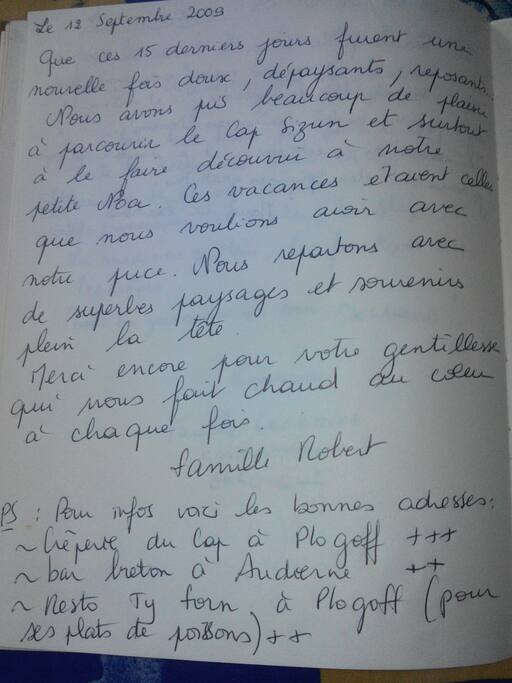 Le 12 Septembre 2009
Que ces 15 derniers jours furent une
nouvelle fois doux, dépaysants, reposants...
Nous avons pis beaucoup de plaisir
à parcourir le Cap Sizun et surtout
à le faire découvrir à notre
petite Noa. Ces vacances étaient celles
que nous voulions avoir avec
notre puce. Nous repartons avec
de superbes paysages et souvenirs
plein la tête.
Merci encore pour votre gentillesse
qui nous fait chaud au coeur
à chaque fois.
Famille Robert
PS : Pour infos voici les bonnes adresses:
~ Crêperie du Cap à Plogoff +++
~ bar breton à Audierne ++
~ Resto Ty forn à Plogoff (pour
ses plats de poissons) ++